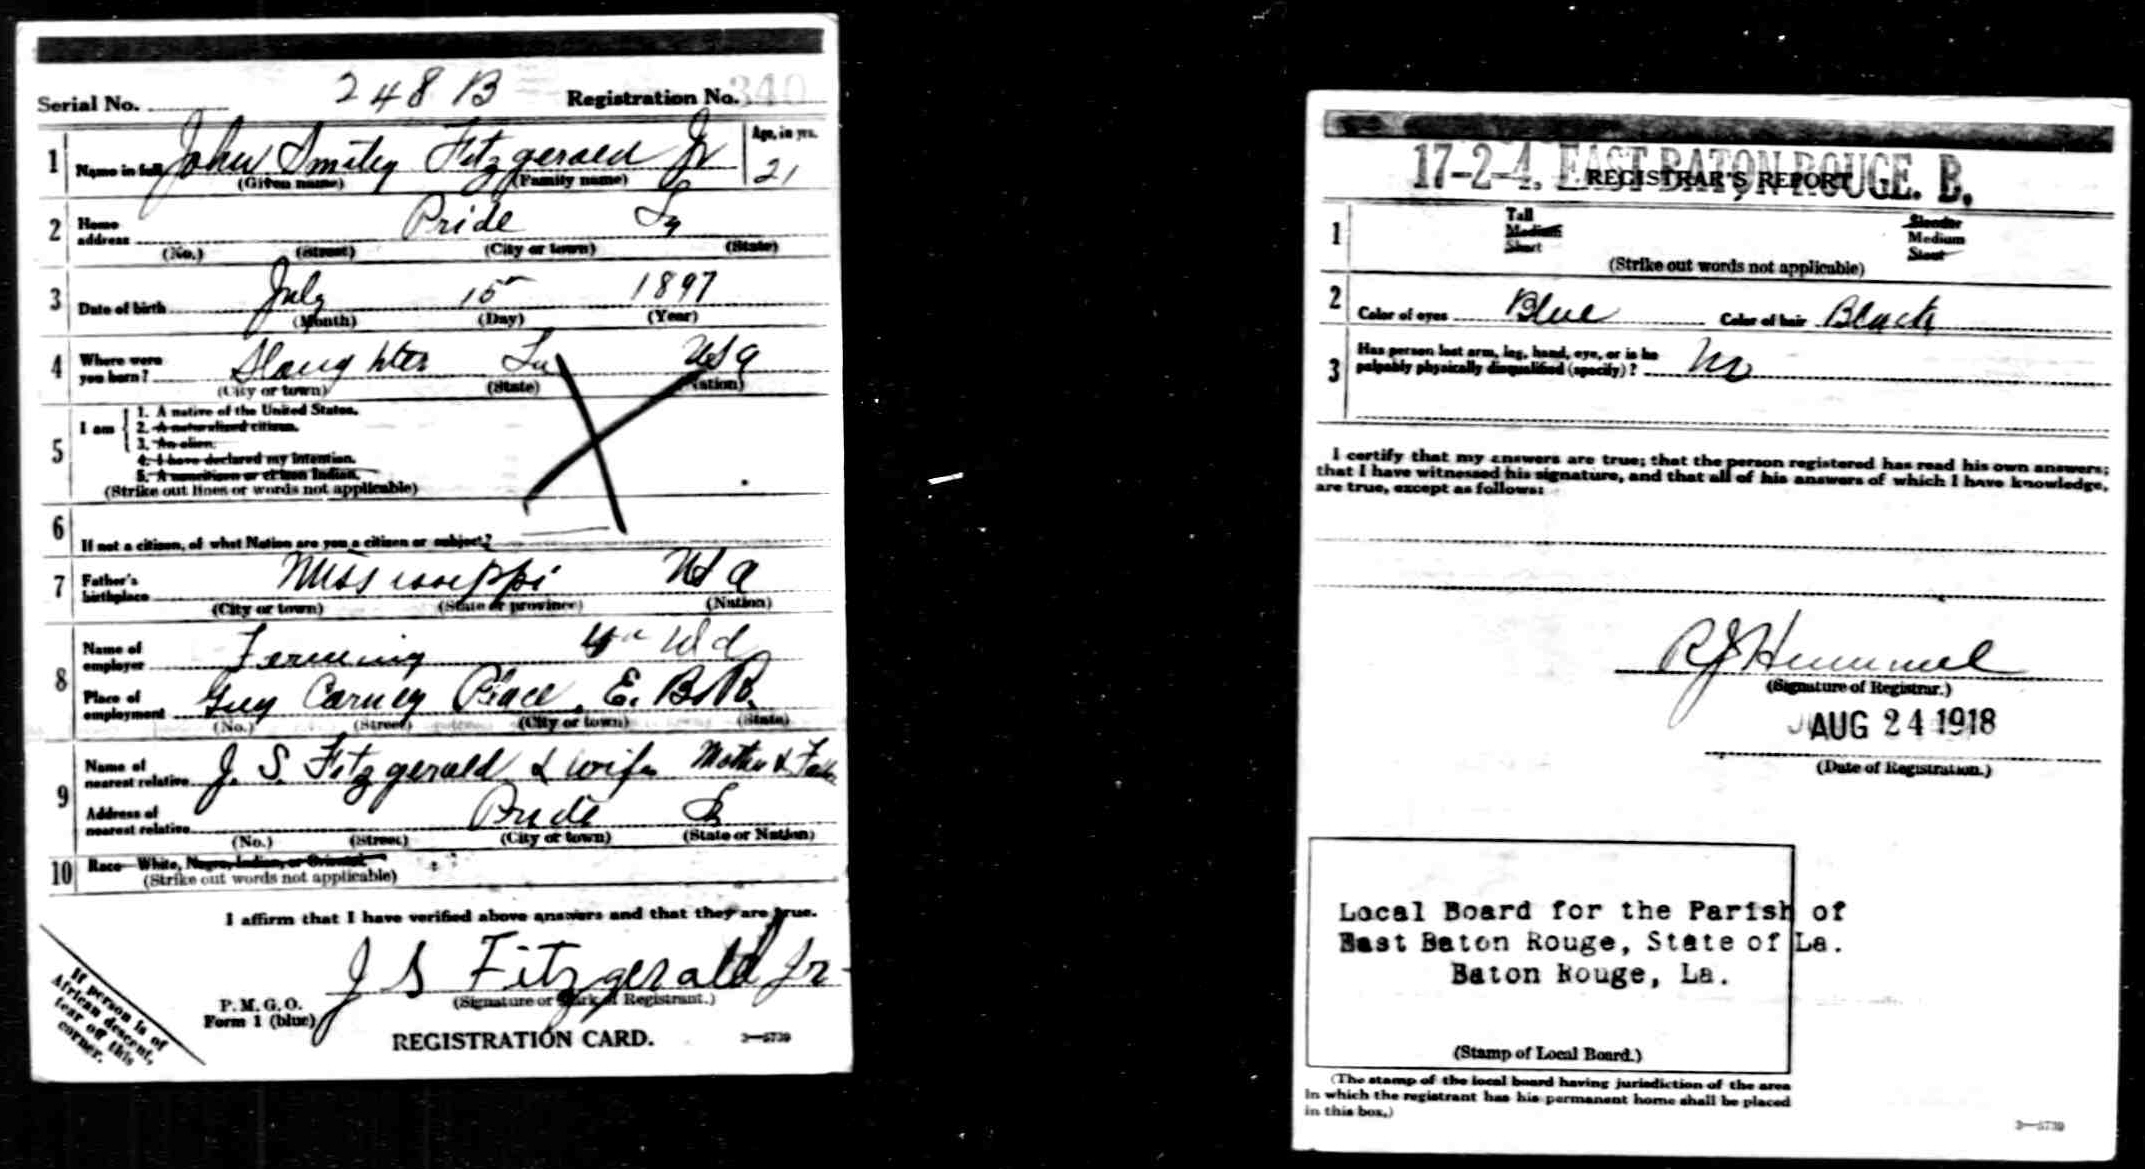 Serial No. 248 B Registration No. 340
1 Name in full John Smiley Fitzgerald Jr Age, in yrs. 21
(Given name) (Family name)
2 Home address Pride La
(No.) (Street) (City or town) (State)
3 Date of birth July 15 1897
(Month) (Day) (Year)
4 Where were you born? Slaughter La USA
(City or town) (State) (Nation)
5 I am
1. A native of the United States.
2. A naturalized citizen.
3. An alien.
4. I have declared my intention.
5. A noncitizen or citizen Indian.
(Strike out lines or words not applicable)
6 If not a citizen, of what Nation are you a citizen or subject?
7 Father's birthplace Mississippi USA
(City or town) (State or province) (Nation)
8 Name of employer Farming 4th Wd
Place of employment Guy Carney Place, E. B. R.
(No.) (Street) (City or town) (State)
9 Name of nearest relative J. S. Fitzgerald & wife Mother &
Address of nearest relative Pride La
(No.) (Street) (City or town) (State or Nation)
10 Race—White, Negro, Indian, or Oriental.
(Strike out words not applicable)
I affirm that I have verified above answers and that they are true.
J S Fitzgerald Jr
(Signature or Mark of Registrant.)
P. M. G. O.
Form 1 (blue)
REGISTRATION CARD.
3—5739
If person is of
African descent,
tear off this
corner.
17-2-4. EAST BATON ROUGE. B.
REGISTRAR'S REPORT
1 Tall Slender
Medium Medium
Short Stout
(Strike out words not applicable)
2 Color of eyes Blue Color of hair Black
3 Has person lost arm, leg, hand, eye, or is he
palpably physically disqualified (specify)? No
I certify that my answers are true; that the person registered has read his own answers;
that I have witnessed his signature, and that all of his answers of which I have knowledge,
are true, except as follows:
R J Hummel
(Signature of Registrar.)
AUG 24 1918
(Date of Registration.)
Local Board for the Parish of
East Baton Rouge, State of La.
Baton Rouge, La.
(Stamp of Local Board.)
(The stamp of the local board having jurisdiction of the area
in which the registrant has his permanent home shall be placed
in this box.)
3—5739